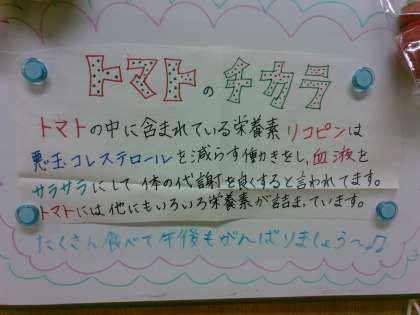 トマトのチカラ
トマトの中に含まれている栄養素リコピンは
悪玉コレステロールを減らす働きをし、血液を
サラサラにして体の代謝を良くすると言われてます。
トマトには他にもいろいろ栄養素が詰まっています。
たくさん食べて午後もがんばりましょう〜♫